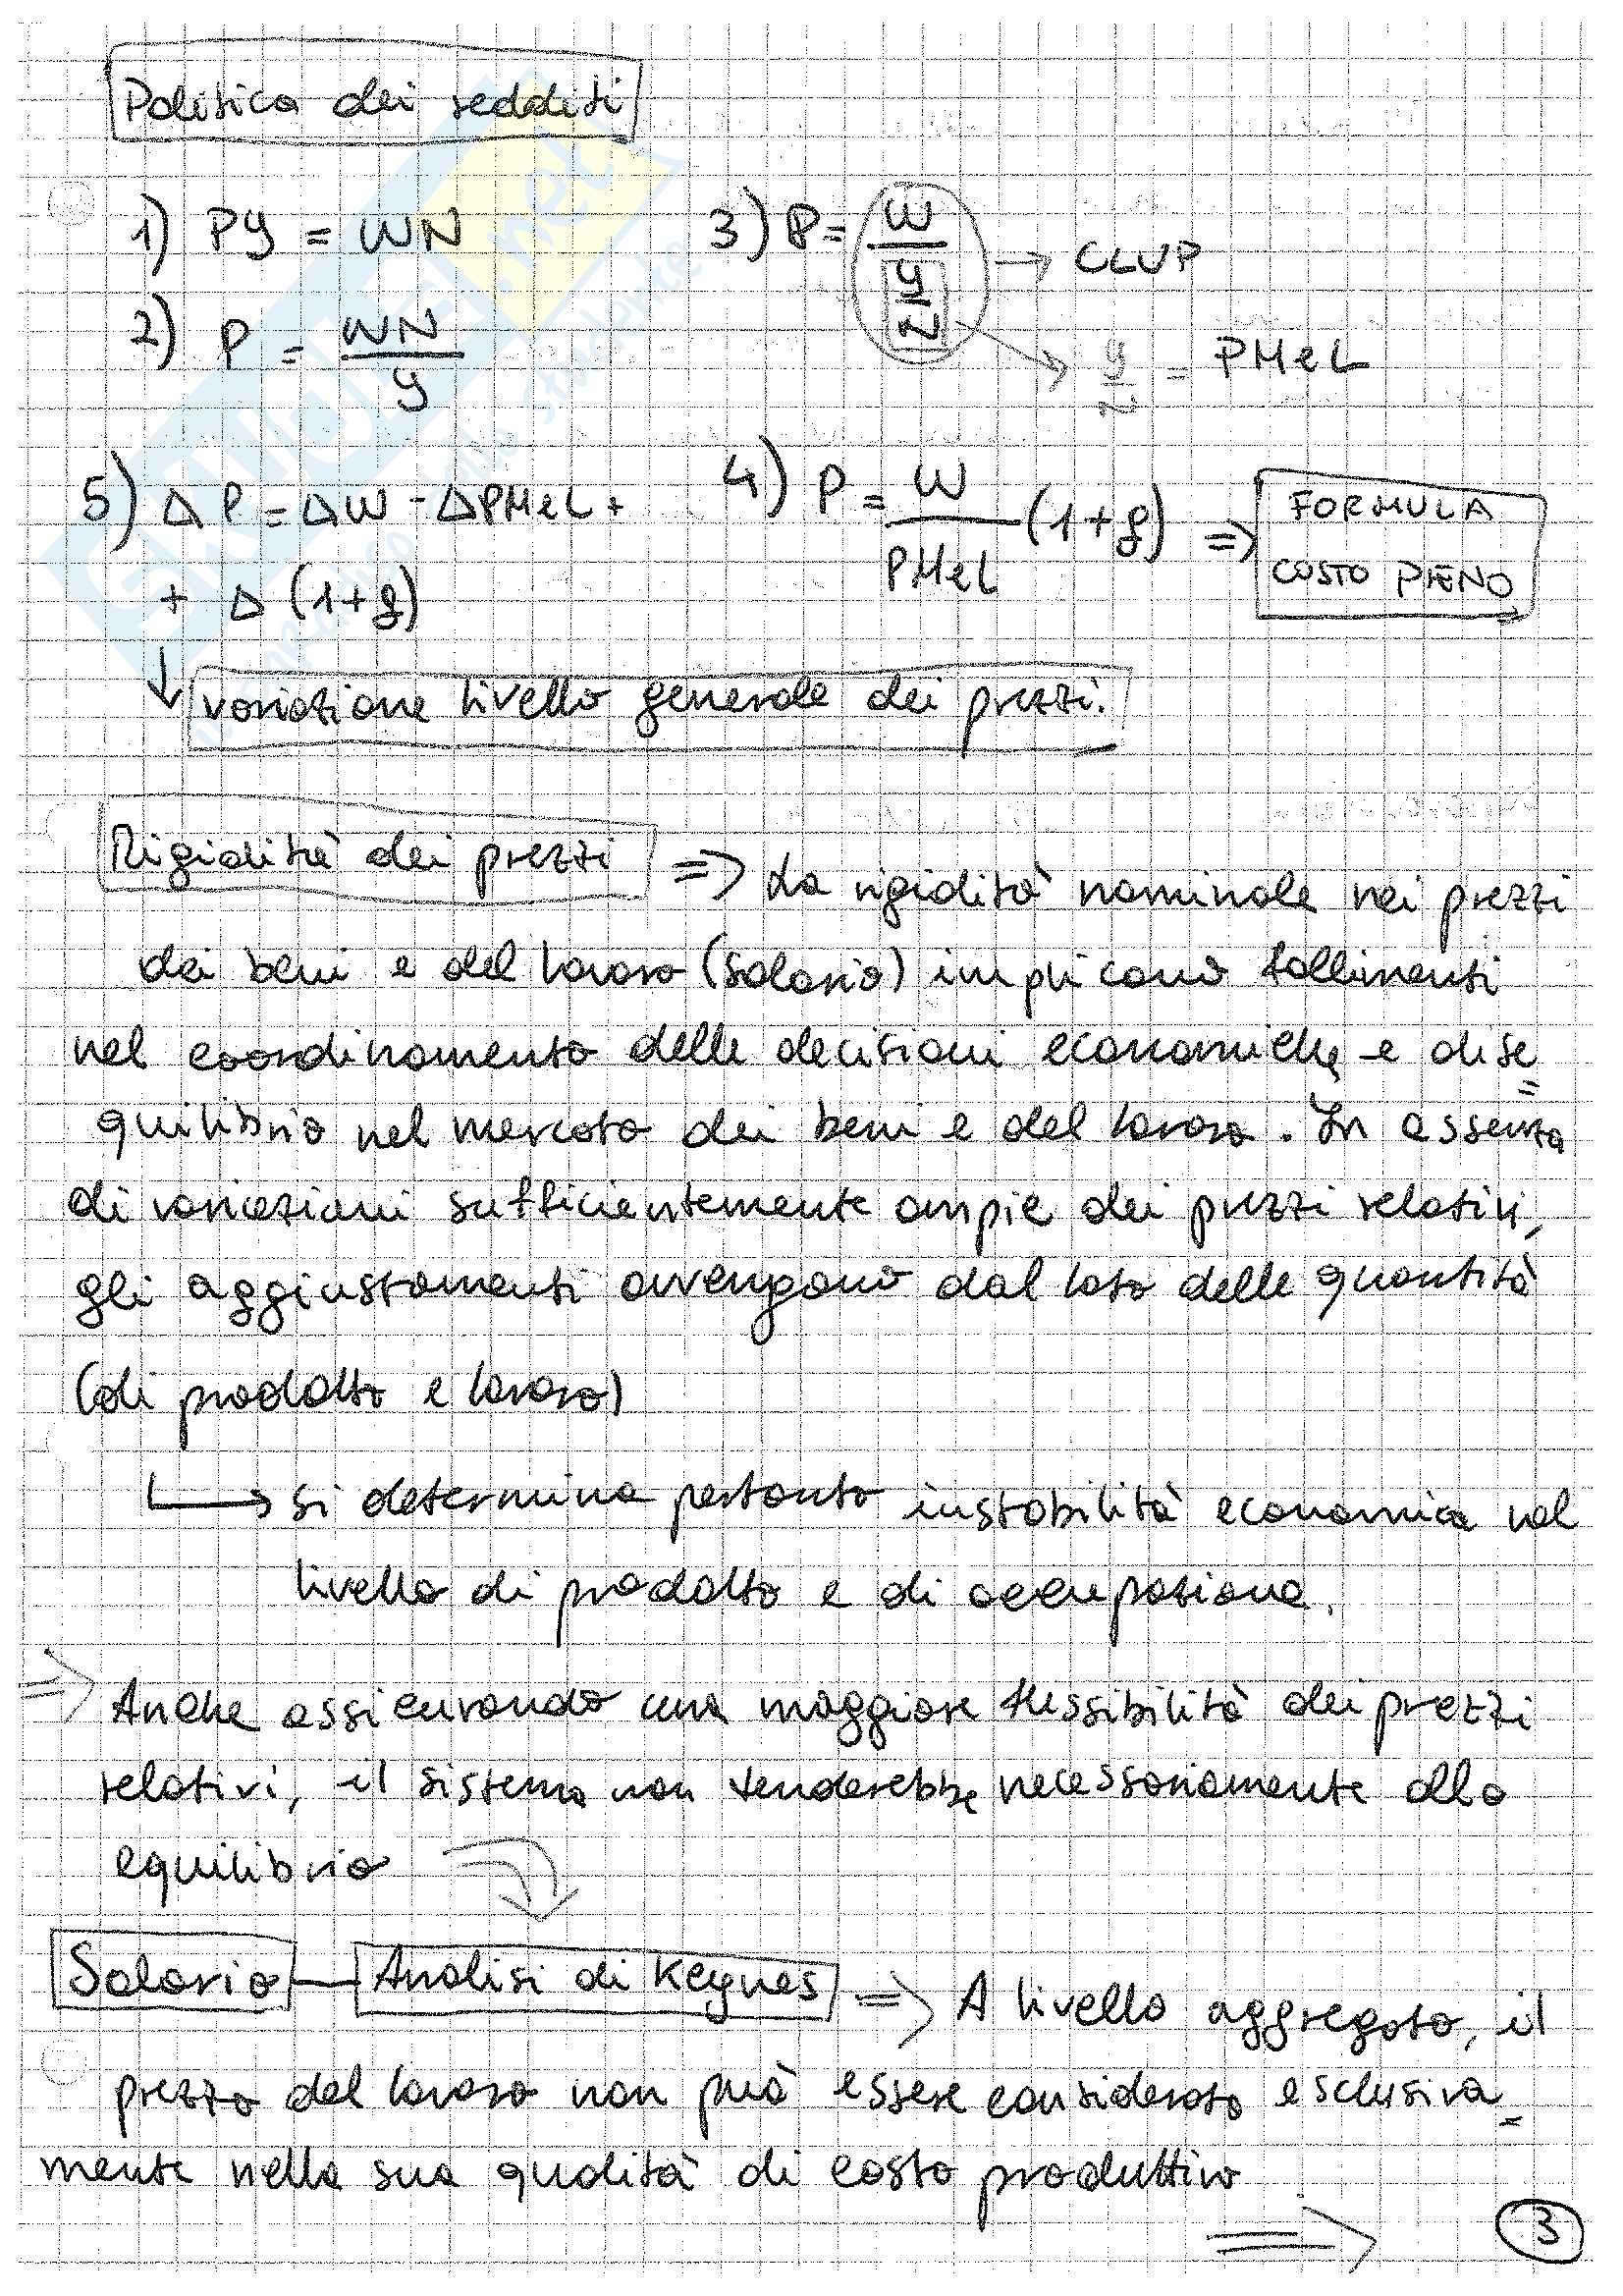 Politica dei redditi
1) PY = WN
2) P = WN / Y
3) P = W / (Y/N) → CLUP
→ Y/N = PMeL
4) P = W / PMeL (1+g) ⇒ FORMULA COSTO PIENO
5) Δ P = ΔW - ΔPMeL +
+ Δ (1+g)
↓ variazione livello generale dei prezzi.
Rigidità dei prezzi ⇒ La rigidità nominale nei prezzi
dei beni e del lavoro (salario) implicano fallimenti
nel coordinamento delle decisioni economiche e dise=
quilibrio nel mercato dei beni e del lavoro. In assenza
di variazioni sufficientemente ampie dei prezzi relativi,
gli aggiustamenti avvengono dal lato delle quantità
(di prodotto e lavoro)
↳ si determina pertanto instabilità economica nel
livello di prodotto e di occupazione.
⇒ Anche assicurando una maggiore flessibilità dei prezzi
relativi, il sistema non tenderebbe necessariamente allo
equilibrio
Salario — Analisi di Keynes ⇒ A livello aggregato, il
prezzo del lavoro non può essere considerato esclusiva=
mente nella sua qualità di costo produttivo
⇒ 3